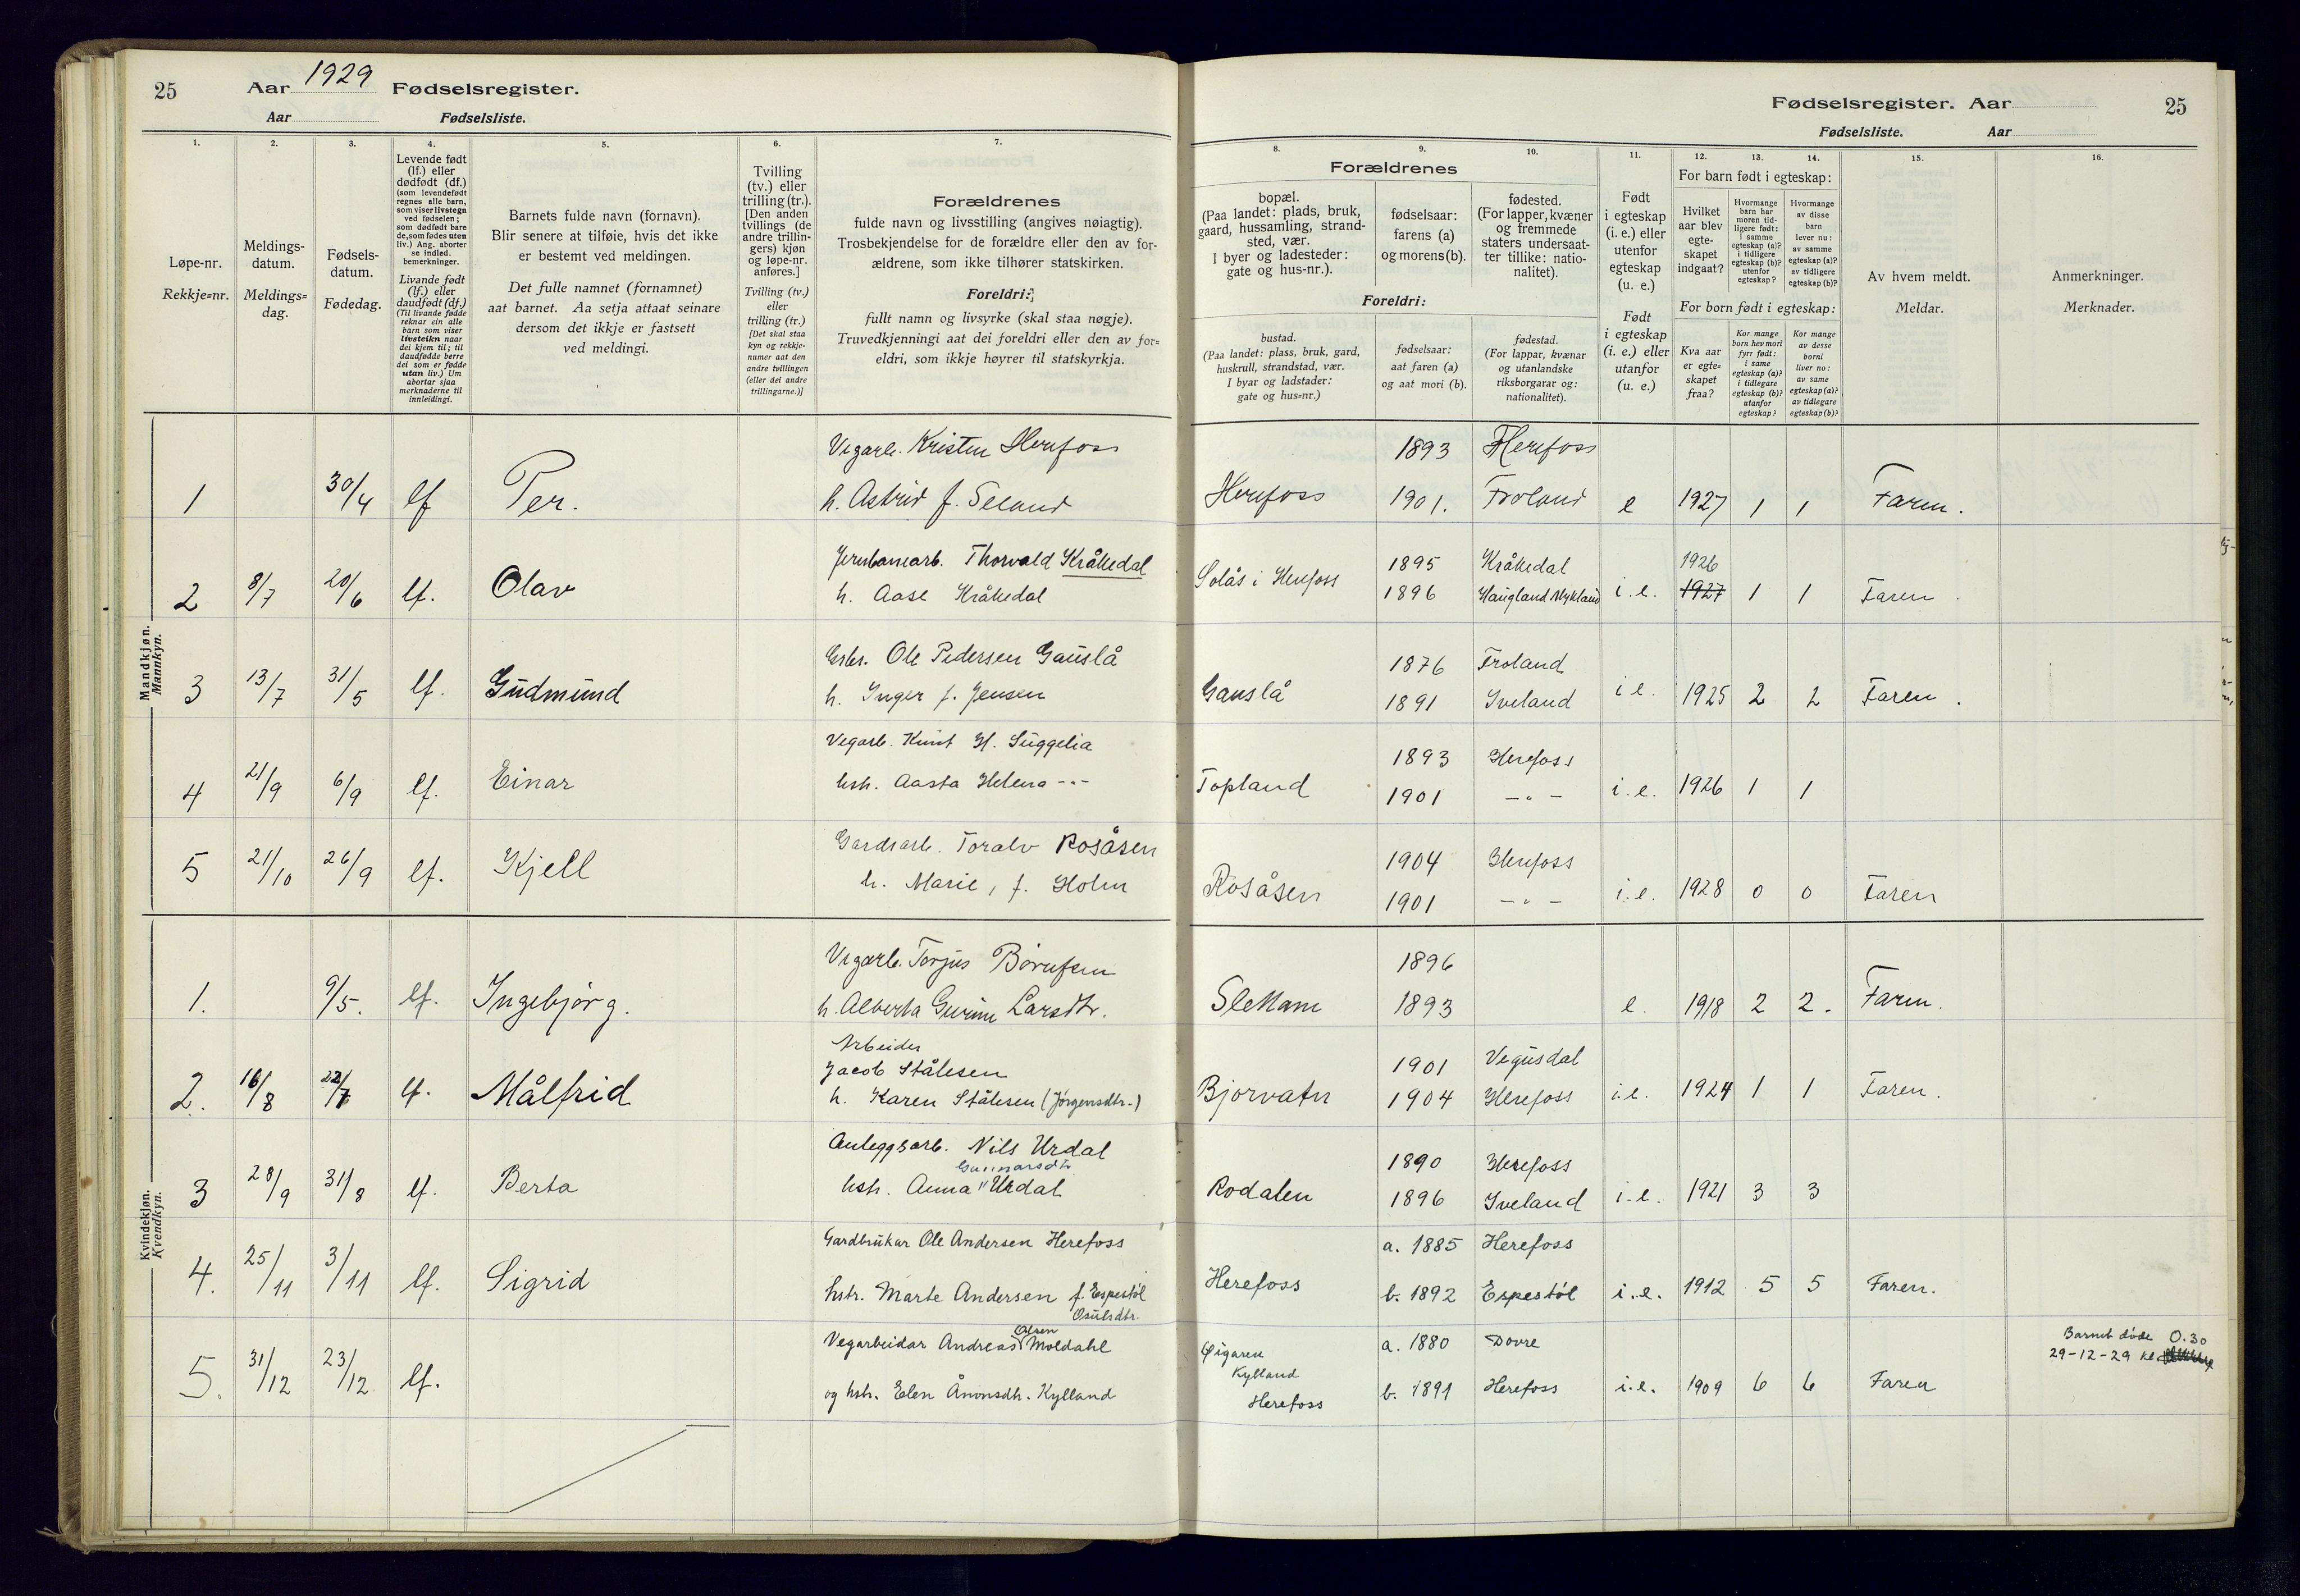 25
Aar 1929 Fødselsregister.
Aar Fødselsliste.
1.
2.
3.
4.
5.
6.
7.
Løpe-nr.
Rekkje=nr.
Meldings-
datum.
Meldings=
dag.
Fødsels-
datum.
Fødedag.
Levende født
(lf.) eller
dødfødt (df.)
(som levendefødt
regnes alle barn,
som viser livstegn
ved fødselen;
som dødfødt bare
de, som fødes uten
liv.) Ang. aborter
se indled.
bemerkninger.
Livande født
(lf.) eller
daudfødt (df.)
(Til livande fødde
reknar ein alle
barn som viser
livsteikn naar
dei kjem til; til
daudfødde berre
dei som er fødde
utan liv.) Um
abortar sjaa
merknaderne til
innleidingi.
Barnets fulde navn (fornavn).
Blir senere at tilføie, hvis det ikke
er bestemt ved meldingen.
Det fulle namnet (fornamnet)
aat barnet. Aa setja attaat seinare
dersom det ikkje er fastsett
ved meldingi.
Tvilling
(tv.) eller
trilling (tr.).
[Den anden
tvillings (de
andre trillin-
gers) kjøn
og løpe-nr.
anføres.]
Tvilling (tv.)
eller
trilling (tr.)
[Det skal staa
kyn og rekkje-
numer aat den
andre tvillingen
(eller dei andre
trillingarne.)]
Forældrenes
fulde navn og livsstilling (angives nøiagtig).
Trosbekjendelse for de forældre eller den av for-
ældrene, som ikke tilhører statskirken.
Foreldri:
fullt namn og livsyrke (skal staa nøgje).
Truvedkjenningi aat dei foreldri eller den av for=
eldri, som ikkje høyrer til statskyrkja.
Mandkjøn.
Mannkyn.
1 30/4 lf Per.
Vegarb. Kristen Herefoss
h. Astrid f. Seland
2 8/7 20/6 lf. Olav
Jernbanearb. Thorvald Kråkedal
h. Aase Kråkedal
3 13/7 31/5 lf. Gudmund
Grbr. Ole Pedersen Gauslå
h. Inger f. Jensen
4 21/9 6/9 lf. Einar
Vegarb. Knut H. Suggelia
hsh. Aasta Helena -"-
5 21/10 26/9 lf. Kjell
Gardsarb. Toralv Rosåsen
h. Marie, f. Holm
Kvindekjøn.
Kvendkyn.
1. 9/5. lf. Ingebjørg.
Vegarb. Torjus
h. Alberta Larsdtr.
2. 16/8 22/7 lf. Målfrid
Arbeider
Jacob Stålesen
h. Karen Stålesen (Jørgensdtr.)
3 28/9 31/8 lf. Berta
Anleggsarb. Nils Urdal
Gunnarsdtr
hsh. Anna " Urdal
4. 25/11 3/11 lf. Sigrid
Gardbrukar Ole Andersen Herefoss
hstr. Marte Andersen f. Espestøl
Osulsdtr.
5. 31/12 23/12 lf.
Olsen
Vegarbeidar Andreas Moldahl
og hsh. Elen Ånonsdtr. Kylland
Fødselsregister. Aar
25
Fødselsliste. Aar
8.
9.
10.
11.
12.
13.
14.
15.
16.
Forældrenes
bopæl.
(Paa landet: plads, bruk,
gaard, hussamling, strand-
sted, vær.
I byer og ladesteder:
gate og hus-nr.).
fødselsaar:
farens (a)
og morens (b).
fødested.
(For lapper, kvæner
og fremmede
staters undersaat-
ter tillike: natio-
nalitet).
Foreldri:
bustad.
(Paa landet: plass, bruk, gard,
huskrull, strandstad, vær.
I byar og ladstader:
gate og hus=nr.)
fødselsaar:
aat faren (a)
og aat mori (b).
fødestad.
(For lappar, kvænar
og utanlandske
riksborgarar og:
nationalitet).
Født
i egteskap
(i. e.) eller
utenfor
egteskap
(u. e.)
Født
i egteskap
(i. e.) eller
utanfor
(u. e.)
For barn født i egteskap:
Hvilket
aar blev
egte-
skapet
indgaat?
Hvormange
barn har
moren tid-
ligere født:
i samme
egteskap (a)?
i tidligere
egteskap (b)?
utenfor
egteskap?
Hvormange
av disse
barn
lever nu:
av samme
egteskap (a)?
av tidligere
egteskap (b)?
For born født i egteskap:
Kva aar
er egte=
skapet
fraa?
Kor mange
born hev mori
fyrr født:
i same
egteskap (a)?
i tidlegare
egteskap (b)?
utanfor
egteskap?
Kor mange
av desse
borni
liver no:
av same
egteskap (a)?
av tidlegare
egteskap (b)?
Av hvem meldt.
Meldar.
Anmerkninger.
Merknader.
1893 Herefoss
Herefoss 1901. Froland e 1927 1 1 Faren.
1895 Kråkedal 1926
Solås i Herefoss 1896 Haugland Mykland i.e. 1927 1 1 Faren.
1876 Froland
Gauslå 1891 Iveland i e. 1925 2 2 Faren.
1893 Herefoss
Topland 1901 -"- i.e. 1926 1 1
1904 Herefoss
Rosåsen 1901 -"- i.e. 1928 0 0 Faren
1896
Slettane 1893 e. 1918 2 2. Faren.
1901 Vegusdal
Bjorvatn 1904 Herefoss i.e. 1924 1 1 Faren.
1890 Herefoss
Rodalen 1896 Iveland i.e. 1921 3 3
a. 1885 Herefoss
Herefoss b. 1892 Espestøl i.e. 1912 5 5 Faren.
a. 1880 Dovre
Kylland
Herefoss b. 1891 Herefoss i.e. 1909 6 6 Faren
Barnet døde 0.30
29-12-29 kl.